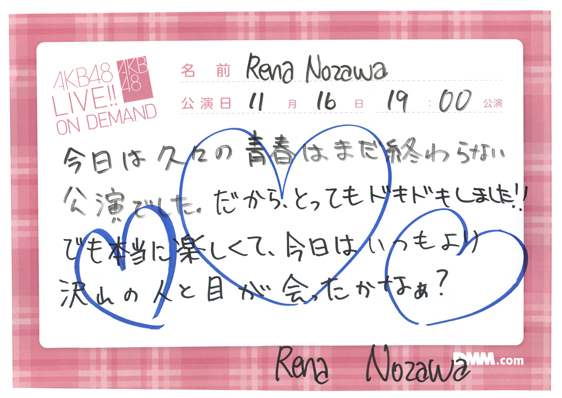 AKB48
LIVE!!
ON DEMAND
AKB
48
名 前 Rena Nozawa
公演日 11 月 16 日 19:00 公演
今日は久々の青春はまだ終わらない
公演でした。だから、とってもドキドキしました!!
でも本当に楽しくて、今日はいつもより
沢山の人と目が会ったかなぁ?
Rena Nozawa
DMM.com